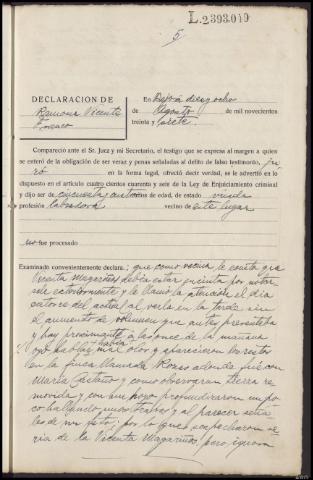 L.2393.019
5
DECLARACION DE
Ramona Vicente
En diez y ocho
de Agosto de mil novecientos
treinta y siete.
Compareció ante el Sr. Juez y mi Secretario, el testigo que se expresa al margen a quien
se enteró de la obligación de ser veraz y penas señaladas al delito de falso testimonio, ju
ró en la forma legal, ofreció decir verdad, se le advertió en lo
dispuesto en el artículo cuatro cientos cuarenta y seis de la Ley de Enjuiciamiento criminal
y dijo ser de cincuenta y cuatro de edad, de estado viuda
profesión labradora vecino de este lugar
no fue procesado
Examinado convenientemente declara: que como vecina le consta que
Vicenta Magariños debía estar encinta por notar
sele exteriormente y le llamó la atención el día
catorce del actual al verla en la tarde sin
el aumento de volumen que antes presentaba
y hoy proximante a las once de la mañana
oyó hablar había mal olor y aparecieron los restos
en la finca llamada adonde fué con
María y como observaran tierra re
movida y con un profundizaron un po
co hallando unos trapos y al parecer seña
les de un feto; por lo que sospecharon se
ría de la Vicenta Magariños, pero ignora